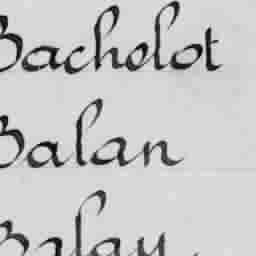 Bachelot
Balan
Balay